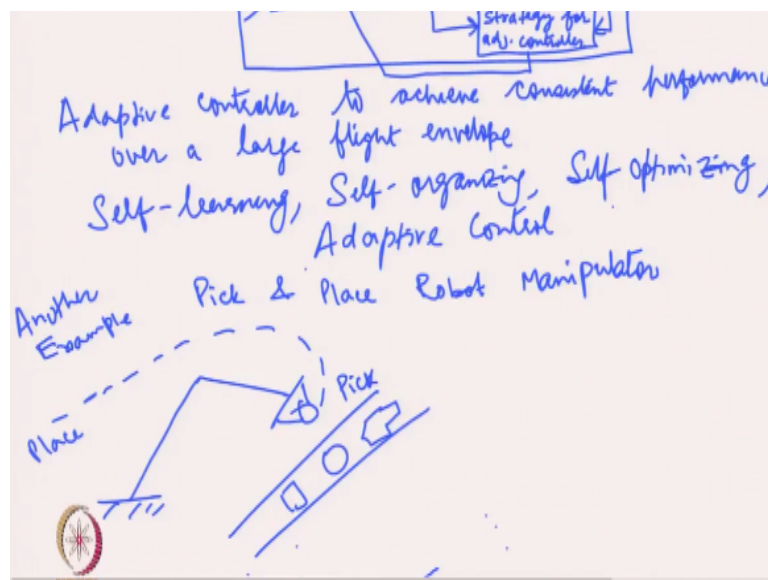 Strategy for
adj. controller
Adaptive controller to achieve consistent performance
over a large flight envelope
Self-learning, Self-organizing, Self Optimizing,
Adaptive Control
Another
Example
Pick & Place Robot Manipulator
Pick
Place